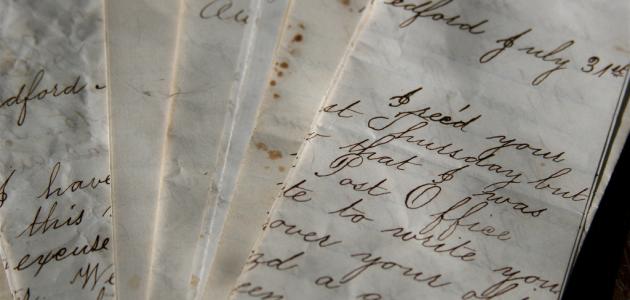 dford -
I have
this
excuse
We
Au
edford July 31st
I rec'd your
st Thursday but
r that I was
Post Office
te to write you
over your
d a
een